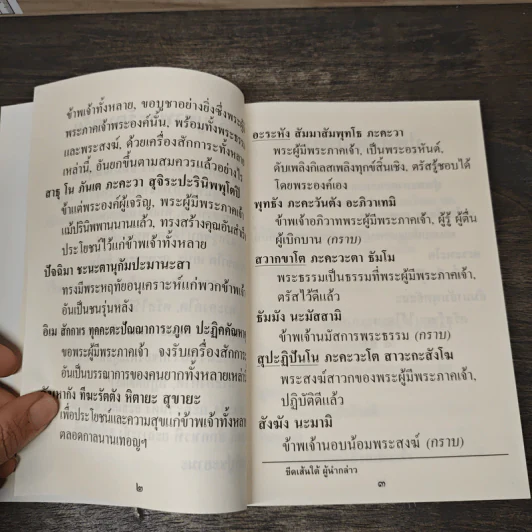 ข้าพเจ้าทั้งหลาย, ขอบูชาอย่างยิ่งซึ่งพระ
พระภาคเจ้าพระองค์นั้น, พร้อมทั้งพระธรรม
และพระสงฆ์, ด้วยเครื่องสักการะทั้งหลาย
เหล่านี้, อันยกขึ้นตามสมควรแล้วอย่างไร
สาธุ โน ภันเต ภะคะวา สุจิระปะรินิพพุโตปิ
ข้าแต่พระองค์ผู้เจริญ, พระผู้มีพระภาคเจ้า
แม้ปรินิพพานนานแล้ว, ทรงสร้างคุณอันสำเร็จ
ประโยชน์ไว้แก่ข้าพเจ้าทั้งหลาย
ปัจฉิมา ชะนะตานุกัมปะมานะสา
ทรงมีพระหฤทัยอนุเคราะห์แก่พวกข้าพเจ้า
อันเป็นชนรุ่นหลัง
อิเม สักการเ ทุคคะตะปัณณาการะภูเต ปะฏิคคัณหาตุ
ขอพระผู้มีพระภาคเจ้า จงรับเครื่องสักการะ
อันเป็นบรรณาการของคนยากทั้งหลายเหล่านี้
ทีฆะรัตตัง หิตายะ สุขายะ
เพื่อประโยชน์และความสุขแก่ข้าพเจ้าทั้งหลาย
ตลอดกาลนานเทอญฯ
๒
อะระหัง สัมมาสัมพุทโธ ภะคะวา
พระผู้มีพระภาคเจ้า, เป็นพระอรหันต์,
ดับเพลิงกิเลสเพลิงทุกข์สิ้นเชิง, ตรัสรู้ชอบได้
โดยพระองค์เอง
พุทธัง ภะคะวันตัง อะภิวาเทมิ
ข้าพเจ้าอภิวาทพระผู้มีพระภาคเจ้า, ผู้รู้ ผู้ตื่น
ผู้เบิกบาน (กราบ)
สวากขาโต ภะคะวะตา ธัมโม
พระธรรมเป็นธรรมที่พระผู้มีพระภาคเจ้า,
ตรัสไว้ดีแล้ว
ธัมมัง นะมัสสามิ
ข้าพเจ้านมัสการพระธรรม (กราบ)
สุปะฏิปันโน ภะคะวะโต สาวะกะสังโฆ
พระสงฆ์สาวกของพระผู้มีพระภาคเจ้า,
ปฏิบัติดีแล้ว
สังฆัง นะมามิ
ข้าพเจ้านอบน้อมพระสงฆ์ (กราบ)
ขีดเส้นใต้ ผู้นำกล่าว
๓